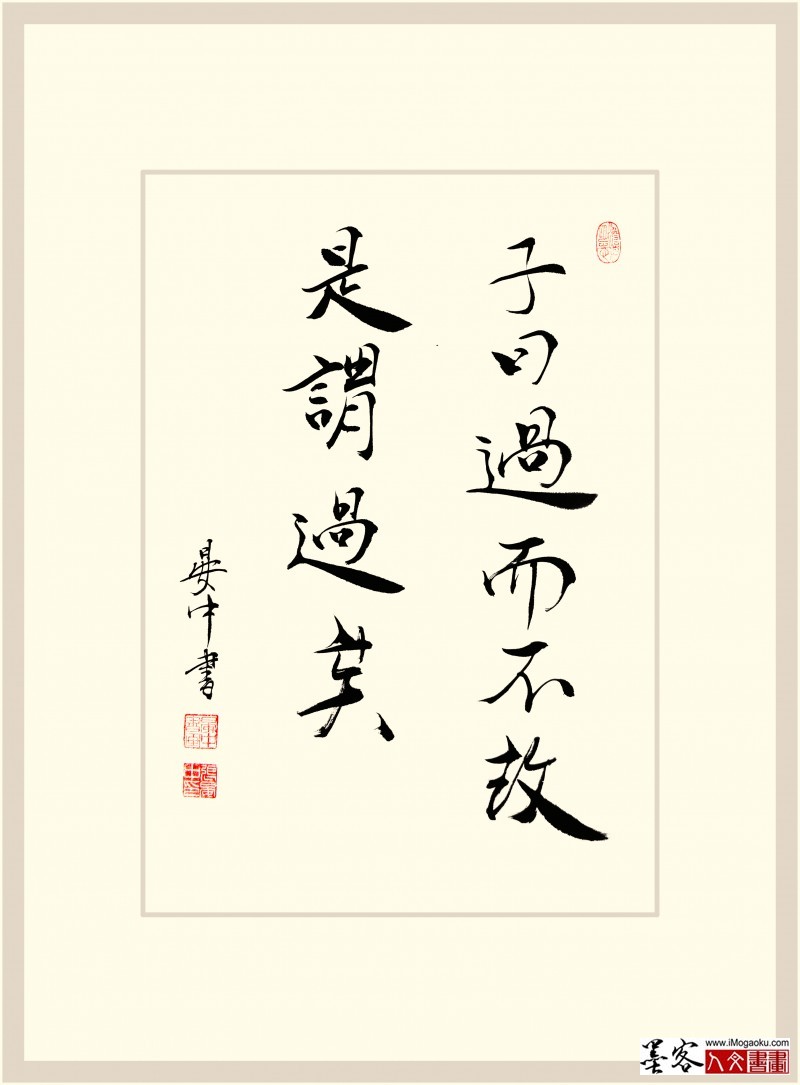 子曰過而不改
是謂過矣
晏中書
墨客
www.iMogaoku.com
人文書畫